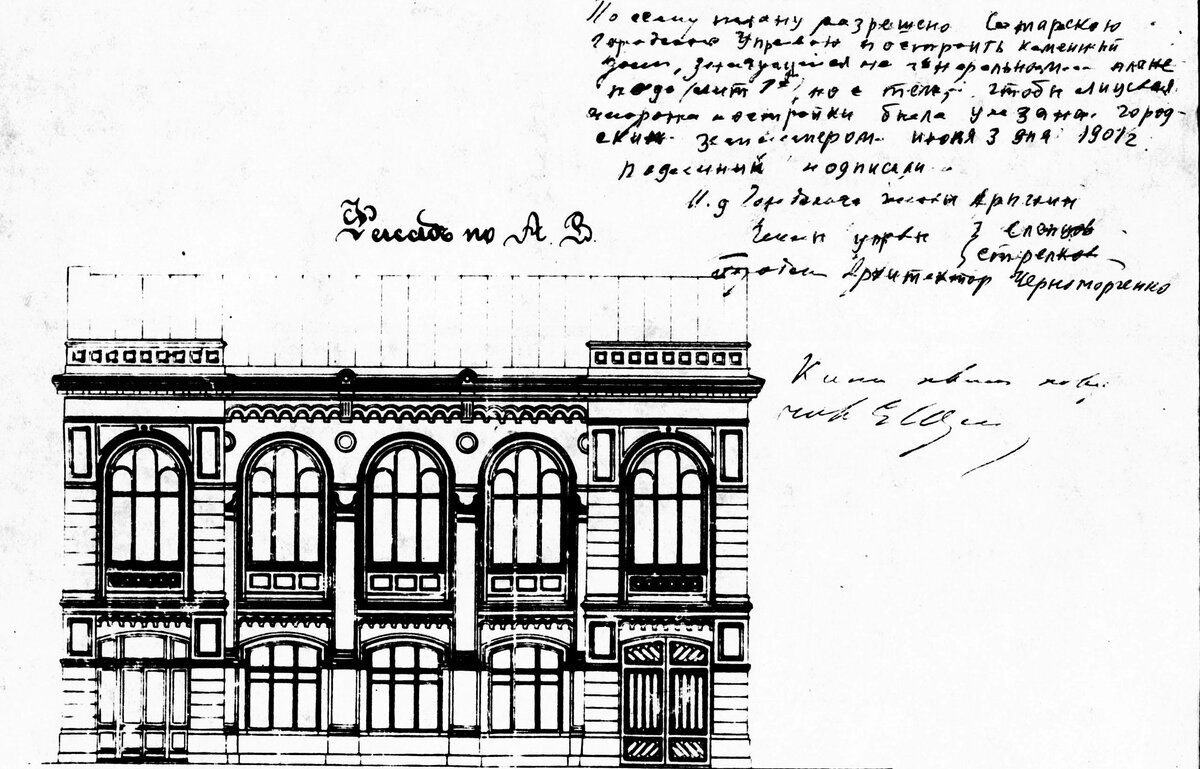 По сему плану разрешено Самарскою
Городскою Управою построить каменный
домъ, значущийся на генеральномъ плане
подъ лит , но с темъ, чтобы лицевая
сторона постройки была указана город-
скимъ землемером июня 3 дня 1901 г.
Подлинный подписали
И. д Городского головы
Члены управы } Слепцов
Стрелков
Архитектор Черноморченко
Фасадъ по А. В.